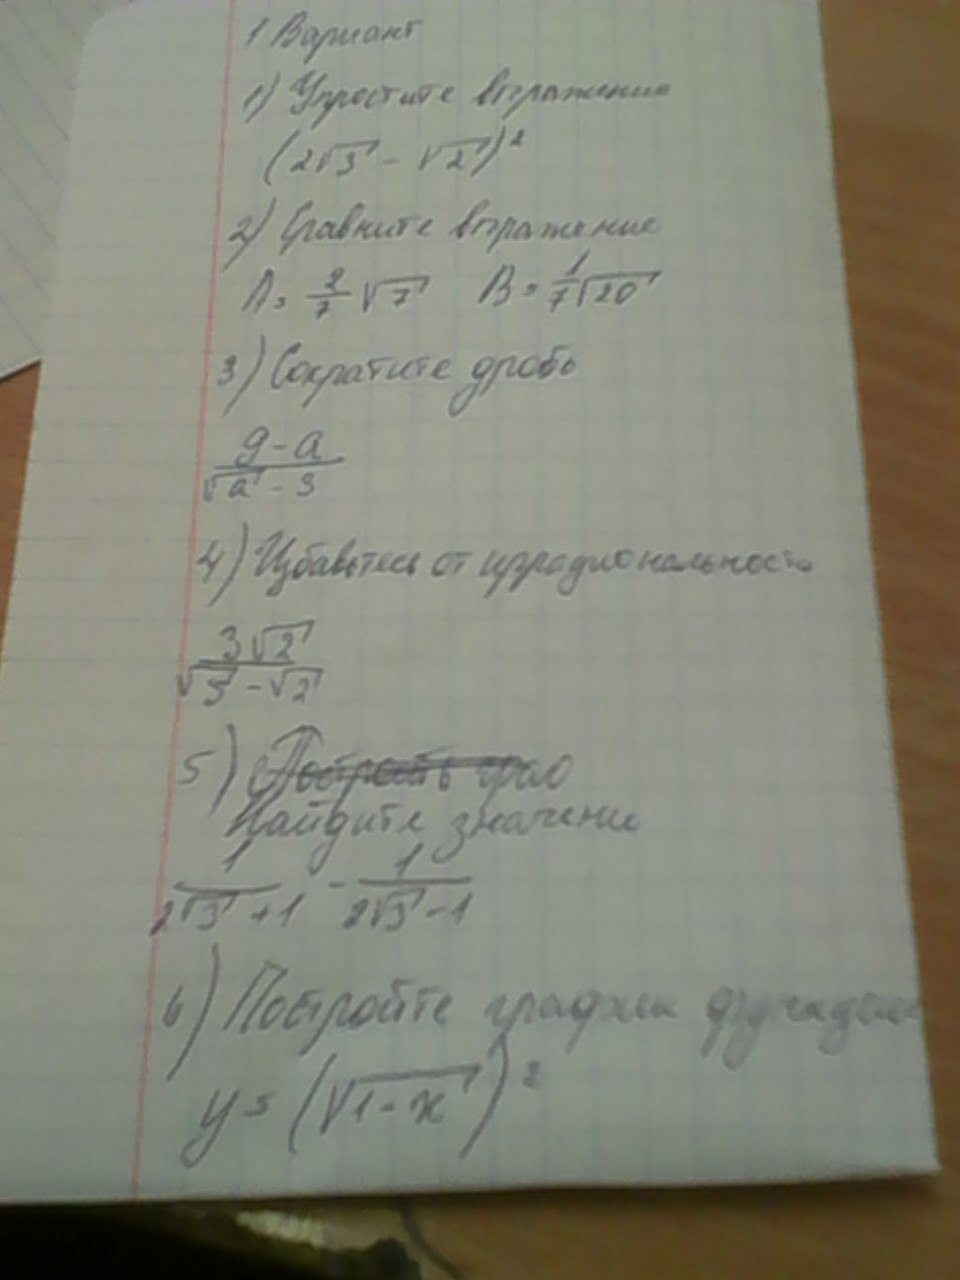 1 Вариант
1) Упростите выражение
(2√3 - √2)²
2) Сравните выражение
A = 2/7 √7 B = 1/7 √20
3) Сократите дробь
9 - a
√a - 3
4) Избавьтесь от иррациональности
3√2
√5 - √2
5)
Найдите значение
1/(2√3 + 1) - 1/(2√3 - 1)
6) Постройте график функции
y = (√1-x)²